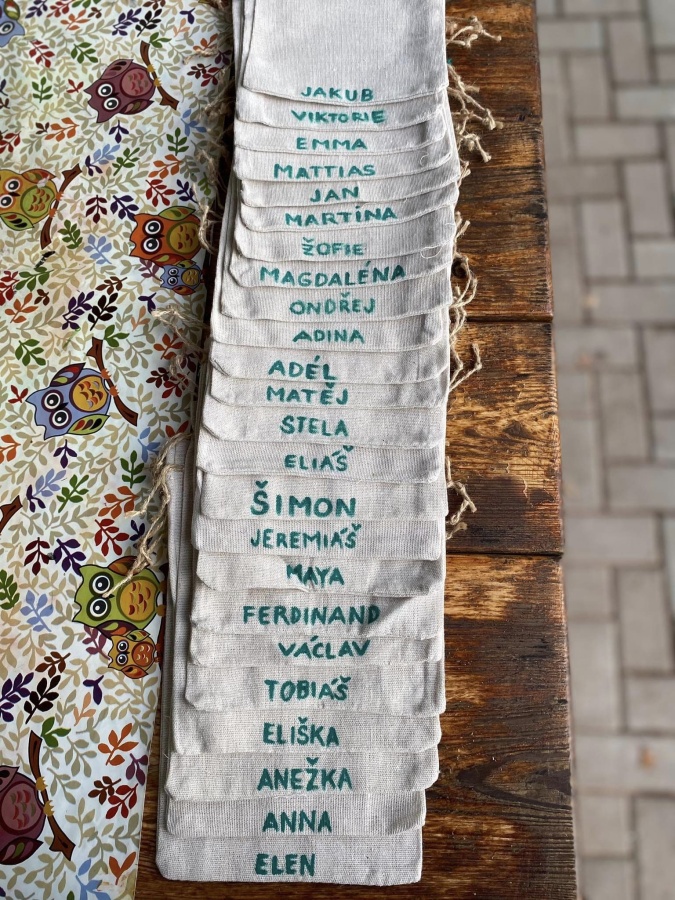 JAKUB
VIKTORIE
EMMA
MATTIAS
JAN
MARTÍNA
ŽOFIE
MAGDALÉNA
ONDŘEJ
ADINA
ADÉL
MATĚJ
STELA
ELIÁŠ
ŠIMON
JEREMIÁŠ
MAYA
FERDINAND
VÁCLAV
TOBIÁŠ
ELIŠKA
ANEŽKA
ANNA
ELEN